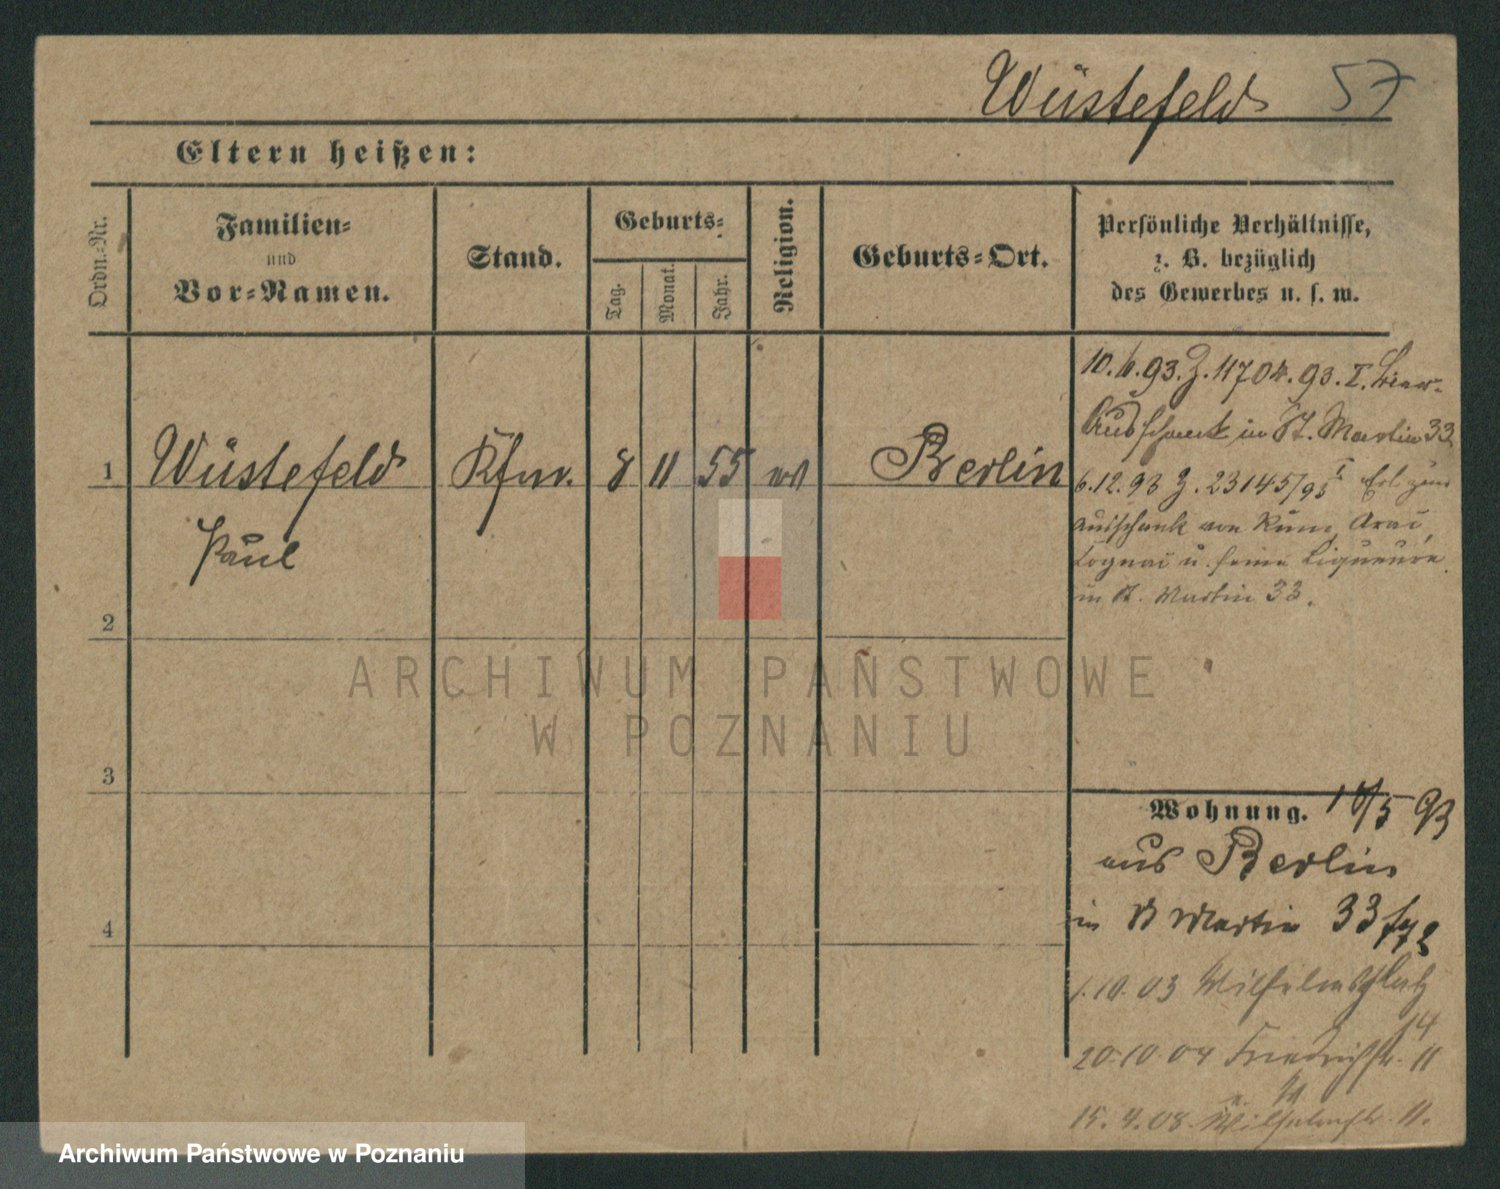 Wüstefeld 57
Eltern heißen:
Ordn.-Nr.
Familien-
und
Vor-Namen.
Stand.
Geburts-
Tag.
Monat.
Jahr.
Religion.
Geburts-Ort.
Persönliche Verhältnisse,
z. B. bezüglich
des Gewerbes u. s. w.
1 Wüstefeld Kfm. 8 11 55 Berlin
Paul
2
3
4
10.6.93. J. 11704.93.I. Bier-
Ausschank in St. Martin 33
6.12.93 J. 23145/93 I Erl. zum
Ausschank von Rum, Arac,
Cognac u. feine Liqueure
in St. Martin 33.
Wohnung. 5 93
aus Berlin
in St Martin 33
1.10.03 Wilhelmsplatz
14
20.10.04 Friedrichstr. 11
15.4.08. Wilhelmstr. 11.
ARCHIWUM PAŃSTWOWE
W POZNANIU
Archiwum Państwowe w Poznaniu